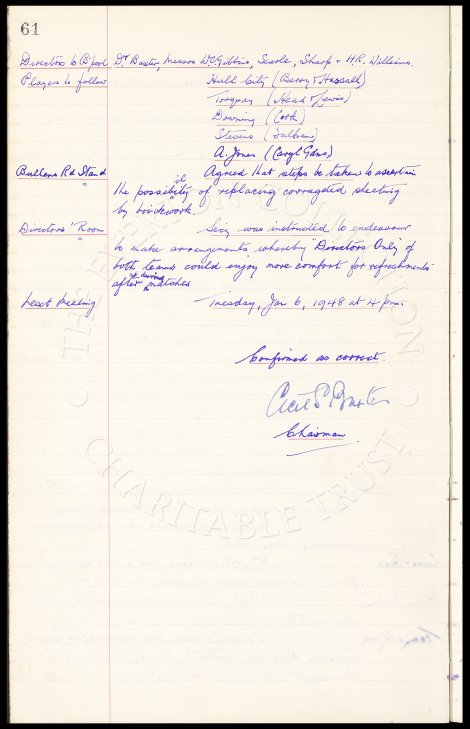 61
Directors to B'pool Dr Baxter, Messrs W.C. Gibbins, Searle, Sharp & H.R. Williams.
Players to follow Hull City (Berry & Hassall)
Torquay (Head & Lewis)
Downing (Cork)
Stevens (Dulbans)
A. Jones (Caryl Gdns)
Bullens Rd Stand Agreed that steps be taken to ascertain
the possibility of replacing corrugated sheeting
by brickwork.
Directors' Room Secy was instructed to endeavour
to make arrangements whereby Directors Only of
both teams could enjoy more comfort for refreshments
after & during matches
Next Meeting Tuesday, Jan 6, 1948 at 4 pm.
Confirmed as correct.
Cecil S Baxter
Chairman
CHARITABLE TRUST